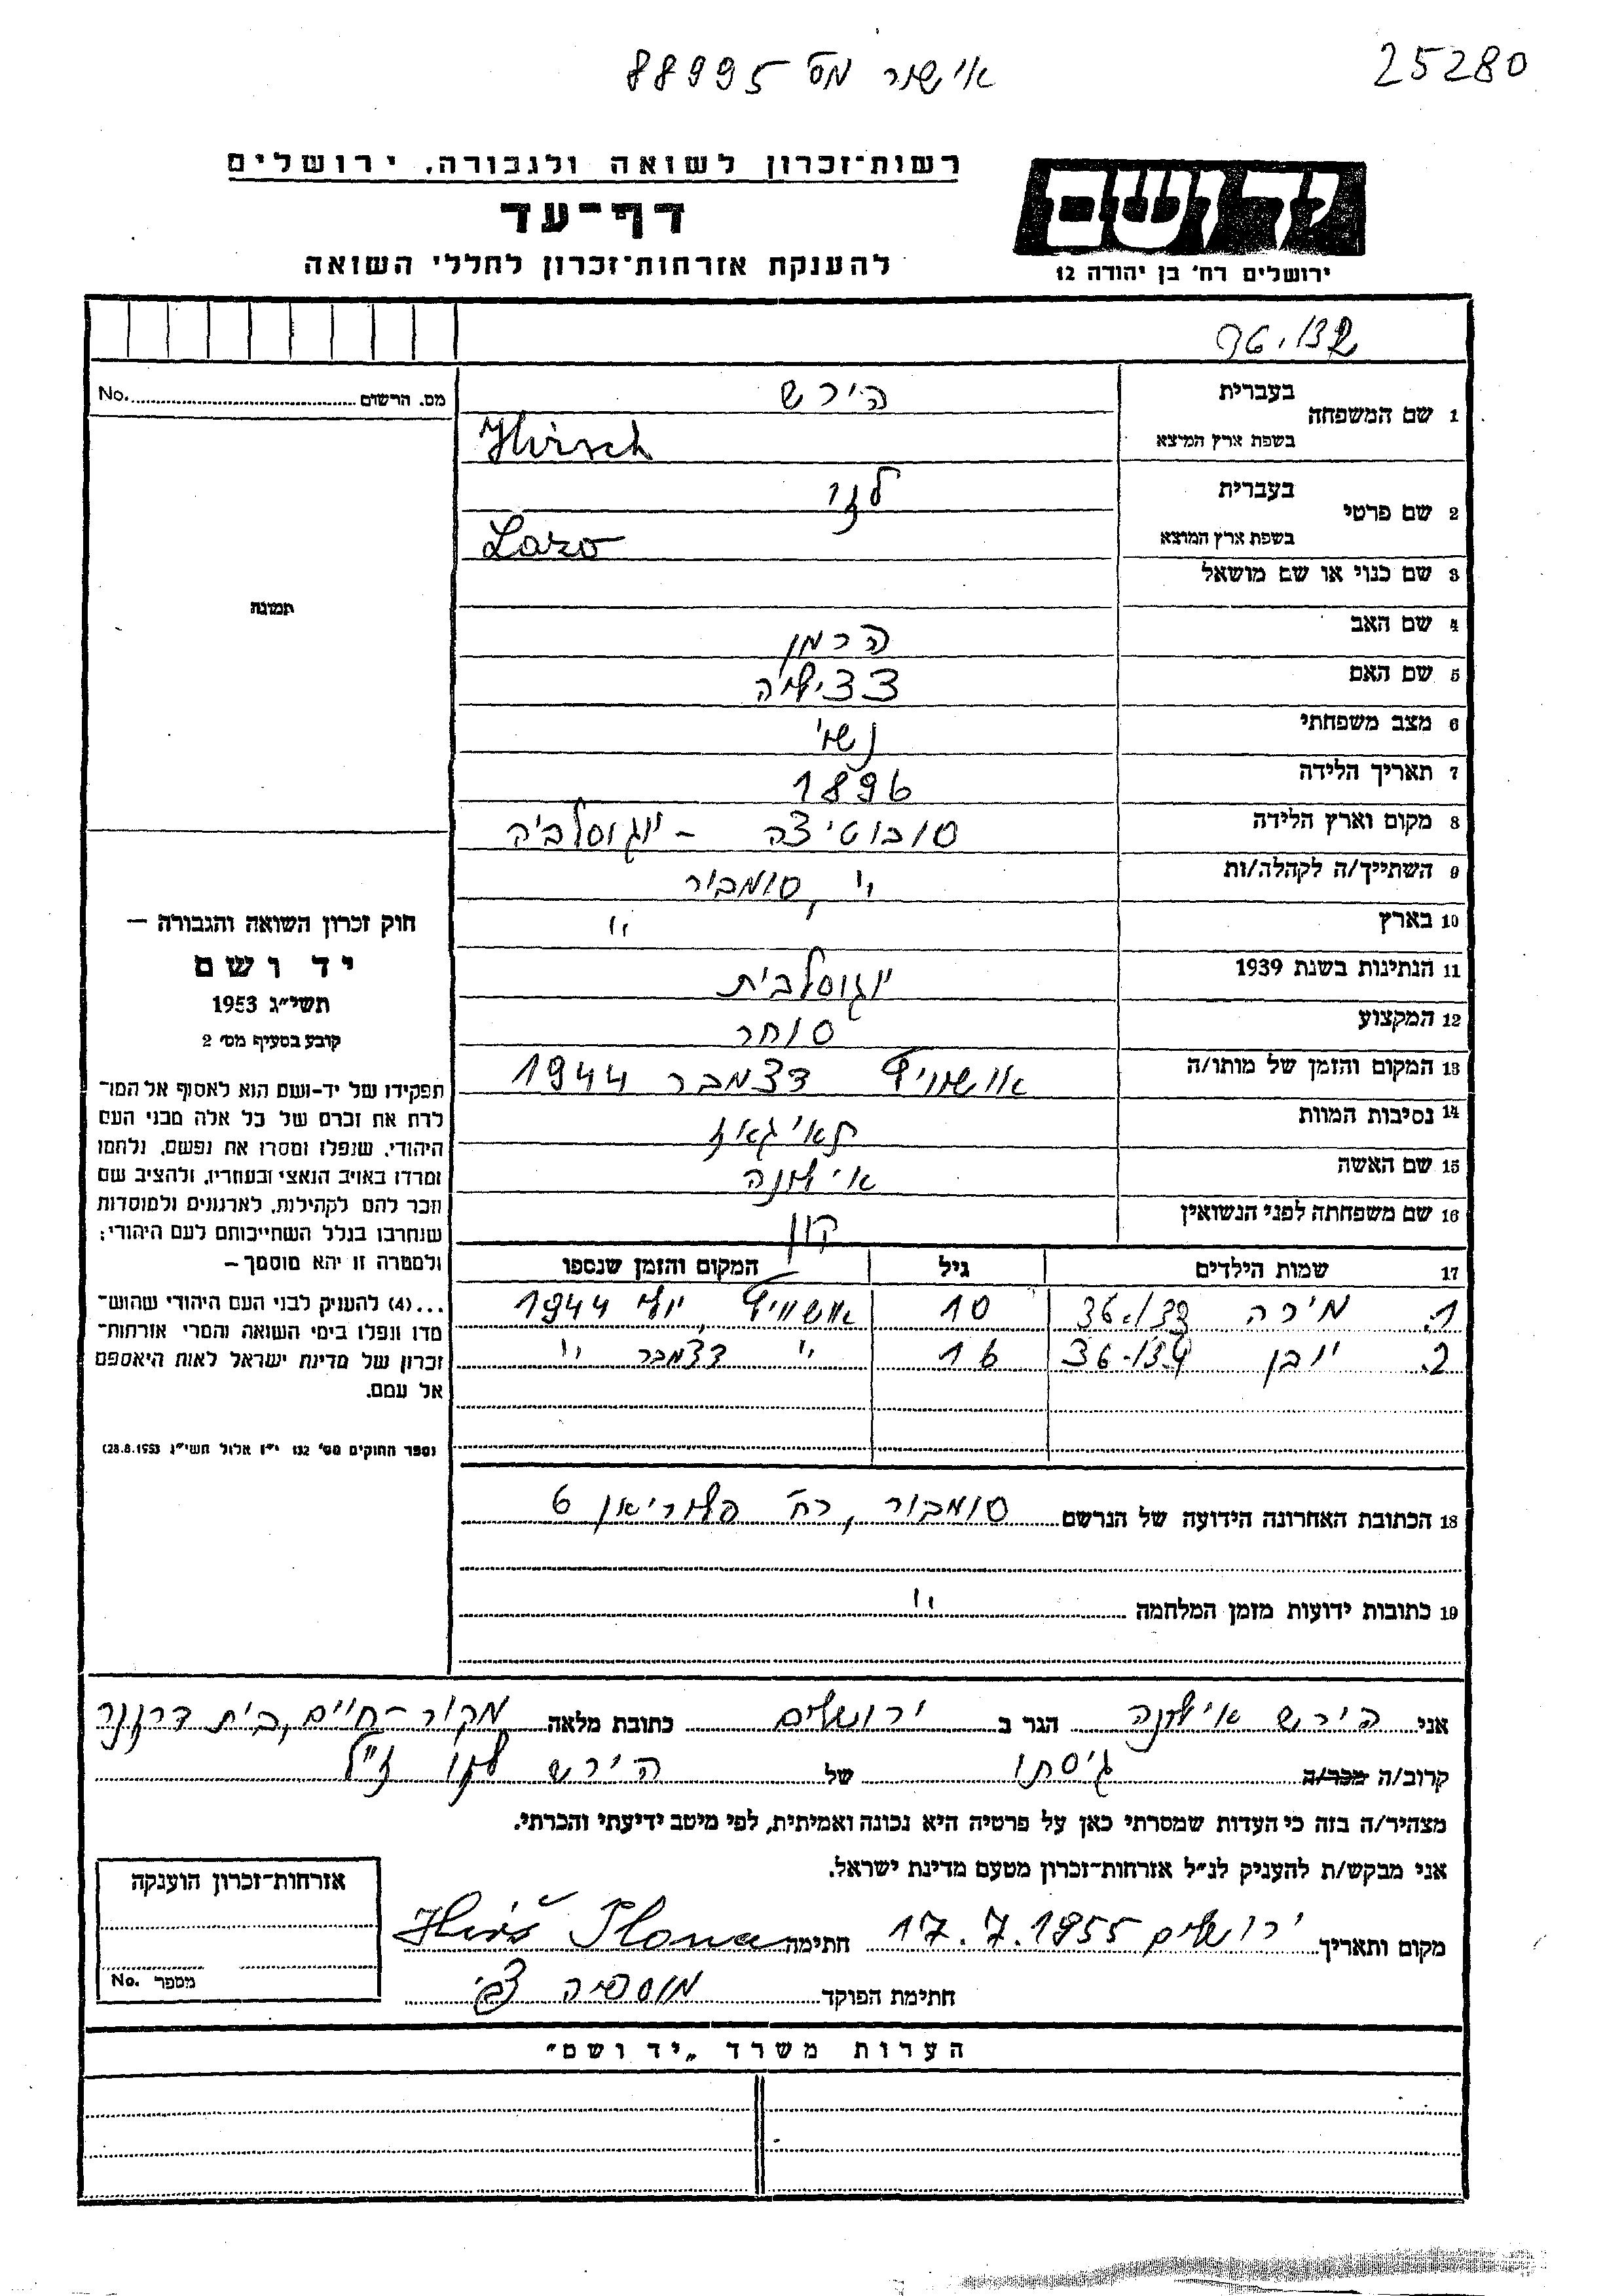 25280
אישור מס 88995
יד ושם
ירושלים רח' בן יהודה 12
רשות-זכרון לשואה ולגבורה, ירושלים
דף-עד
להענקת אזרחות-זכרון לחללי השואה
מס. הרשום No.
תמונה
1 שם המשפחה בעברית הירש
בשפת ארץ המוצא Hirsch
2 שם פרטי בעברית לזו
בשפת ארץ המוצא Lazo
3 שם כנוי או שם מושאל
4 שם האב הרמן
5 שם האם צציליה
6 מצב משפחתי נשוי
7 תאריך הלידה 1896
8 מקום וארץ הלידה סובוטיצה - יוגוסלביה
9 השתייך/ה לקהלה/ות " , סומבור
10 בארץ "
11 הנתינות בשנת 1939 יוגוסלבית
12 המקצוע סוחר
13 המקום והזמן של מותו/ה אושוויץ דצמבר 1944
14 נסיבות המוות תאי גאז
15 שם האשה אילונה
16 שם משפחתה לפני הנשואין קון
17 שמות הילדים גיל המקום והזמן שנספו
1. מירה 36.133 10 אושוויץ, יולי 1944
2. יובן 36.134 16 " דצמבר "
18 הכתובת האחרונה הידועה של הנרשם סומבור, רח' פלוריאן 6
19 כתובות ידועות מזמן המלחמה "
חוק זכרון השואה והגבורה —
יד ושם
תשי"ג 1953
קובע בסעיף מס' 2
תפקידו של יד-ושם הוא לאסוף אל המו-
לדת את זכרם של כל אלה מבני העם
היהודי, שנפלו ומסרו את נפשם, נלחמו
ומרדו באויב הנאצי ובעוזריו, ולהציב שם
וזכר להם לקהילות, לארגונים ולמוסדות
שנחרבו בגלל השתייכותם לעם היהודי;
ולמטרה זו יהא מוסמך —
...(4) להעניק לבני העם היהודי שהוש-
מדו ונפלו בימי השואה והמרי אזרחות-
זכרון של מדינת ישראל לאות היאספם
אל עמם.
(ספר החוקים מס' 132 י"ז אלול תשי"ג 28.8.1953)
אני הירש אילונה הגר ב ירושלים כתובת מלאה מקור-חיים, בית דרונר
קרוב/ה מכר/ה גיסתו של הירש לזו ז"ל
מצהיר/ה בזה כי העדות שמסרתי כאן על פרטיה היא נכונה ואמיתית, לפי מיטב ידיעתי והכרתי.
אני מבקש/ת להעניק לנ"ל אזרחות-זכרון מטעם מדינת ישראל.
מקום ותאריך ירושלים 17.7.1955 חתימה Hirš Ilona
חתימת הפוקד
אזרחות-זכרון הוענקה
מספר No.
הערות משרד „יד ושם"